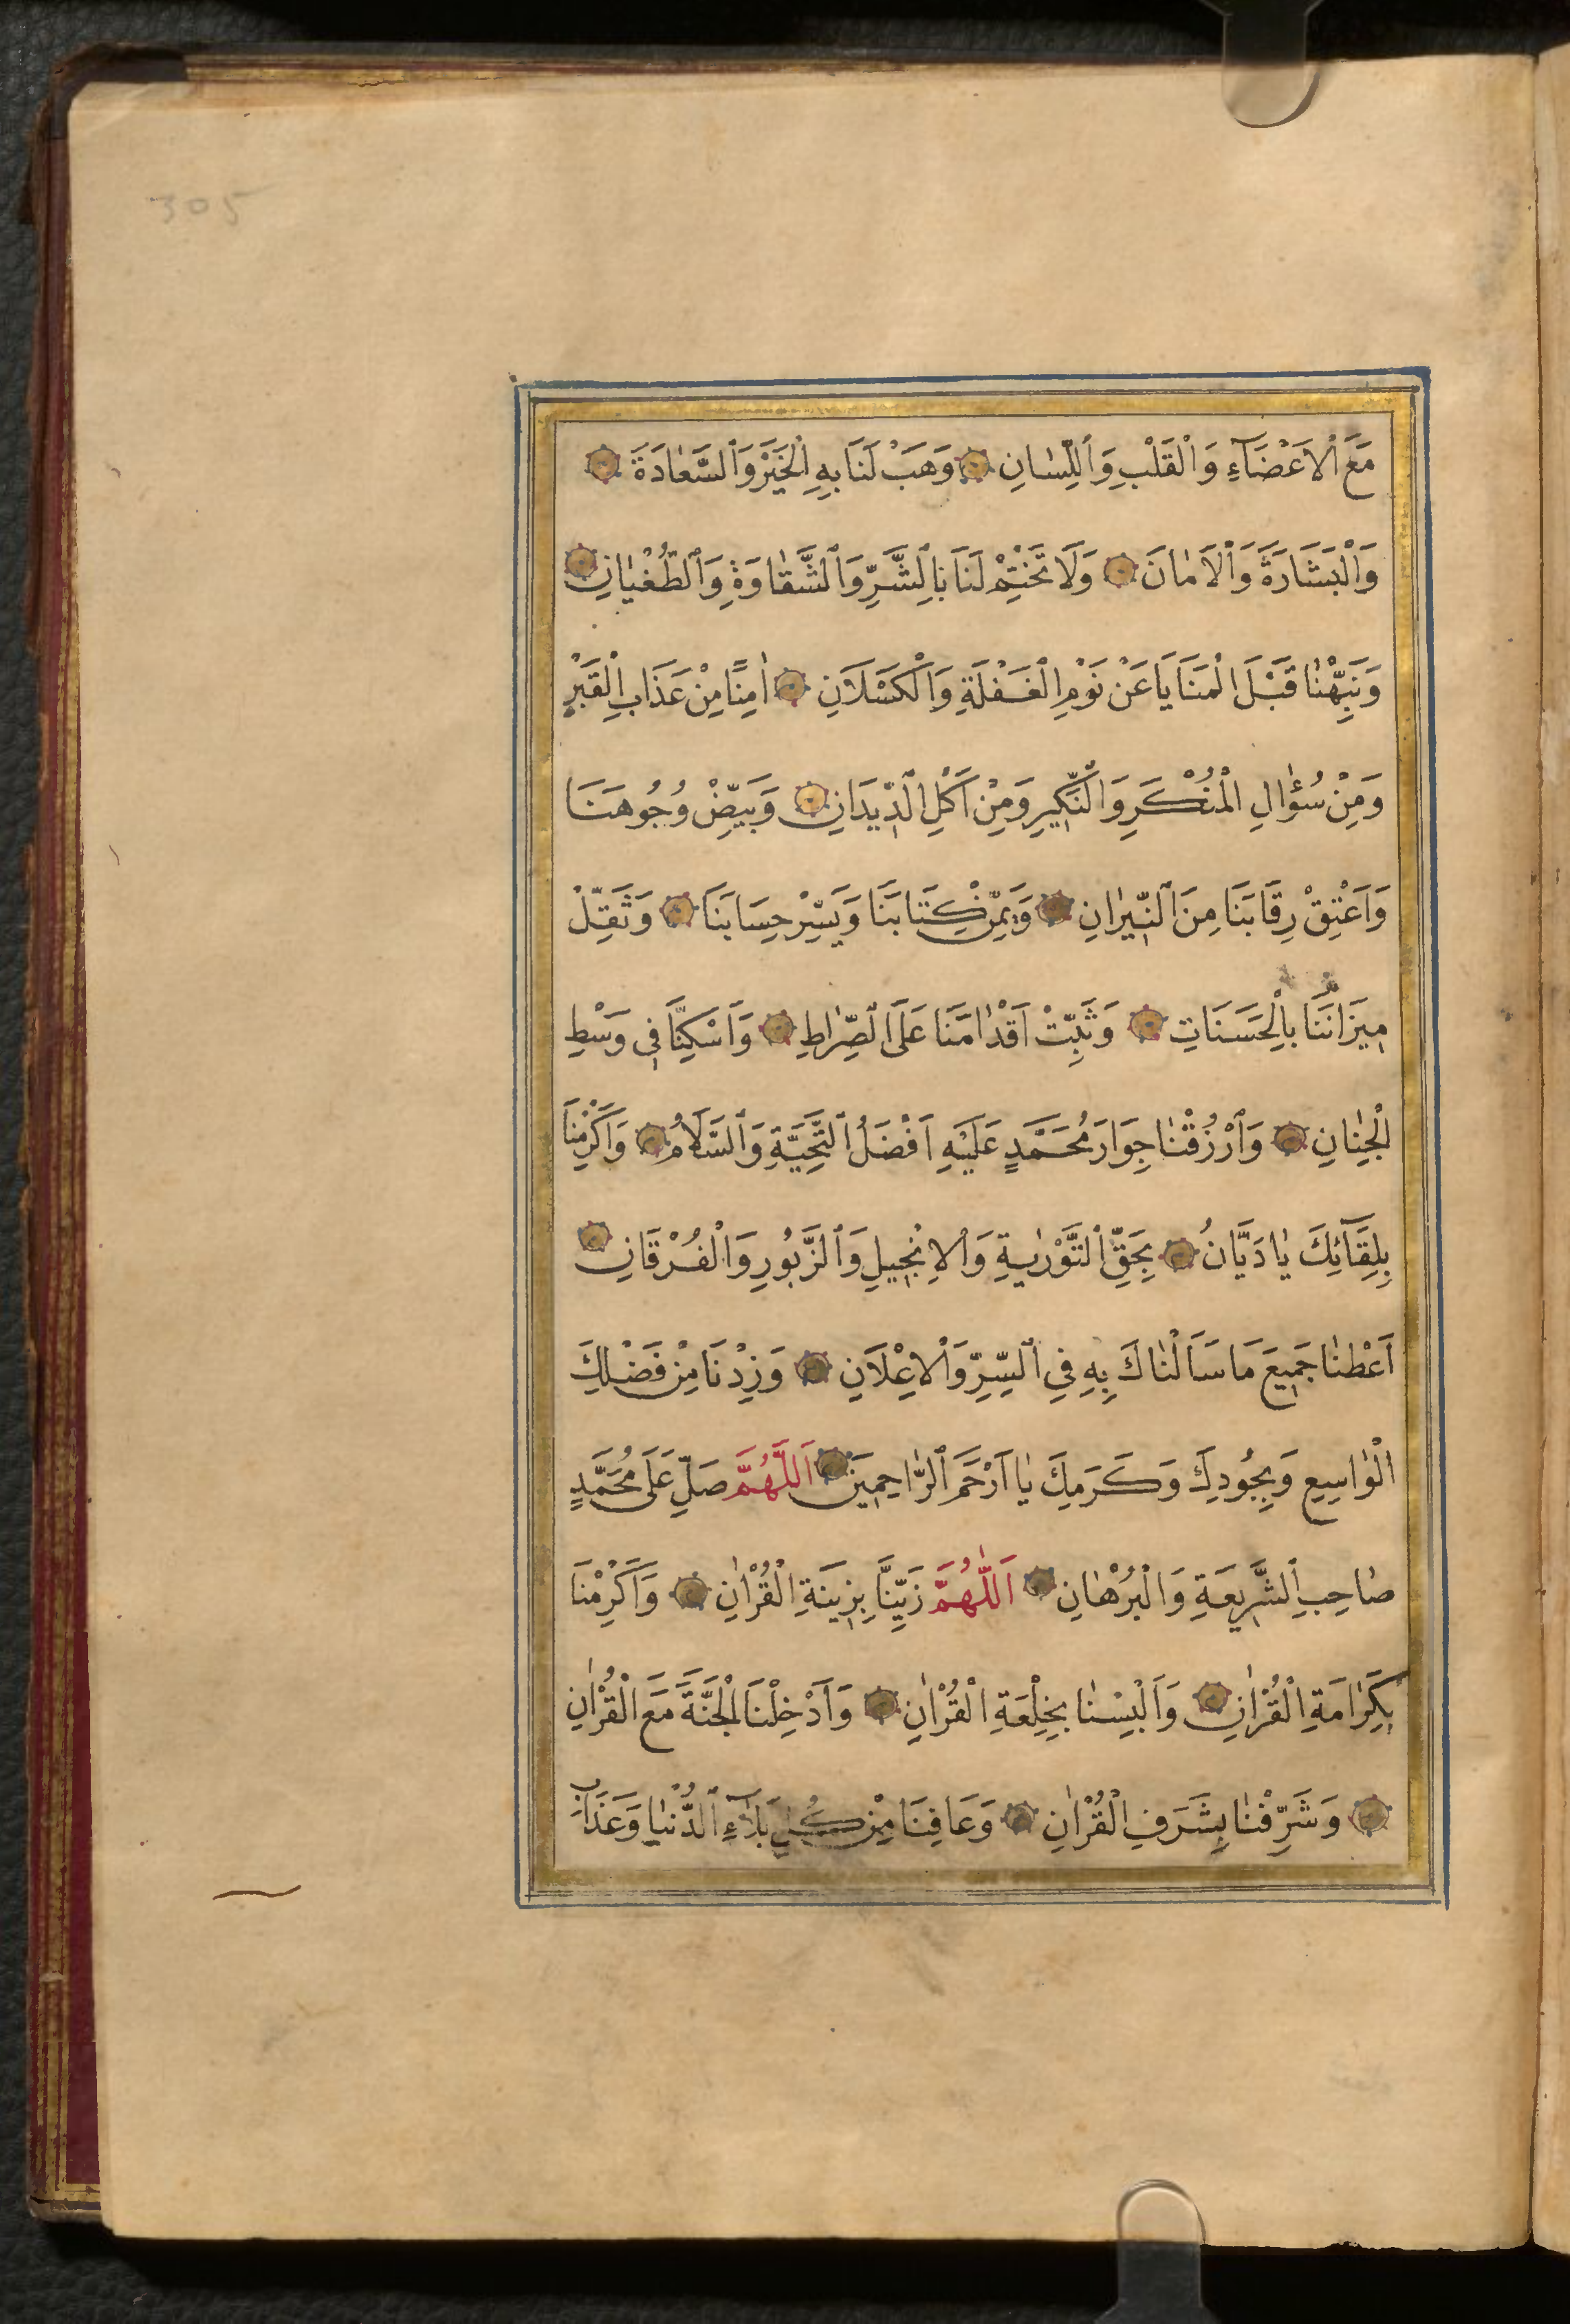 305
مَعَ الْاَعْضَآءِ وَالْقَلْبِ وَاللِّسٰانِ وَهَبْ لَنَا بِهِ الْخَيْرَ وَالسَّعٰادَةَ
وَالْبَشَارَةَ وَالْاَمٰانَ وَلَا تَخْتِمْ لَنَا بِالشَّرِّ وَالشَّقٰاوَةِ وَالطُّغْيٰانِ
وَنَبِّهْنٰا قَبْلَ الْمَنَايَا عَنْ نَوْمِ الْغَفْلَةِ وَالْكَسْلَانِ اٰمِنًا مِنْ عَذَابِ الْقَبْرِ
وَمِنْ سُؤٰالِ الْمُنْكَرِ وَالنَّكِيرِ وَمِنْ اَكْلِ الدِّيدَانِ وَبَيِّضْ وُجُوهَنَا
وَاَعْتِقْ رِقَابَنَا مِنَ النِّيرٰانِ وَيَمِّنْ كِتَابَنَا وَيَسِّرْ حِسَابَنَا وَثَقِّلْ
مِيزَانَنَا بِالْحَسَنَاتِ وَثَبِّتْ اَقْدٰامَنَا عَلَى الصِّرٰاطِ وَاَسْكِنَّا فِي وَسْطِ
الْجِنٰانِ وَارْزُقْنٰا جِوَارَ مُحَمَّدٍ عَلَيْهِ اَفْضَلُ التَّحِيَّةِ وَالسَّلَامُ وَاَكْرِمْنَا
بِلِقَآئِكَ يٰا دَيَّانُ بِحَقِّ التَّوْرٰيةِ وَالْاِنْجِيلِ وَالزَّبُورِ وَالْفُرْقَانِ
اَعْطِنٰا جَمِيعَ مَا سَاَلْنٰاكَ بِهِ فِي السِّرِّ وَالْاِعْلَانِ وَزِدْنَا مِنْ فَضْلِكَ
الْوٰاسِعِ وَبِجُودِكَ وَكَرَمِكَ يٰا اَرْحَمَ الرَّاحِمِينَ اَللَّهُمَّ صَلِّ عَلَى مُحَمَّدٍ
صٰاحِبِ الشَّرِيعَةِ وَالْبُرْهٰانِ اَللّٰهُمَّ زَيِّنَّا بِزِينَةِ الْقُرْاٰنِ وَاَكْرِمْنَا
بِكَرٰامَةِ الْقُرْاٰنِ وَاَلْبِسْنٰا بِخِلْعَةِ الْقُرْاٰنِ وَاَدْخِلْنَا الْجَنَّةَ مَعَ الْقُرْاٰنِ
وَشَرِّفْنٰا بِشَرَفِ الْقُرْاٰنِ وَعَافِنَا مِنْ كُلِّ بَلَآءِ الدُّنْيٰا وَعَذَابِ